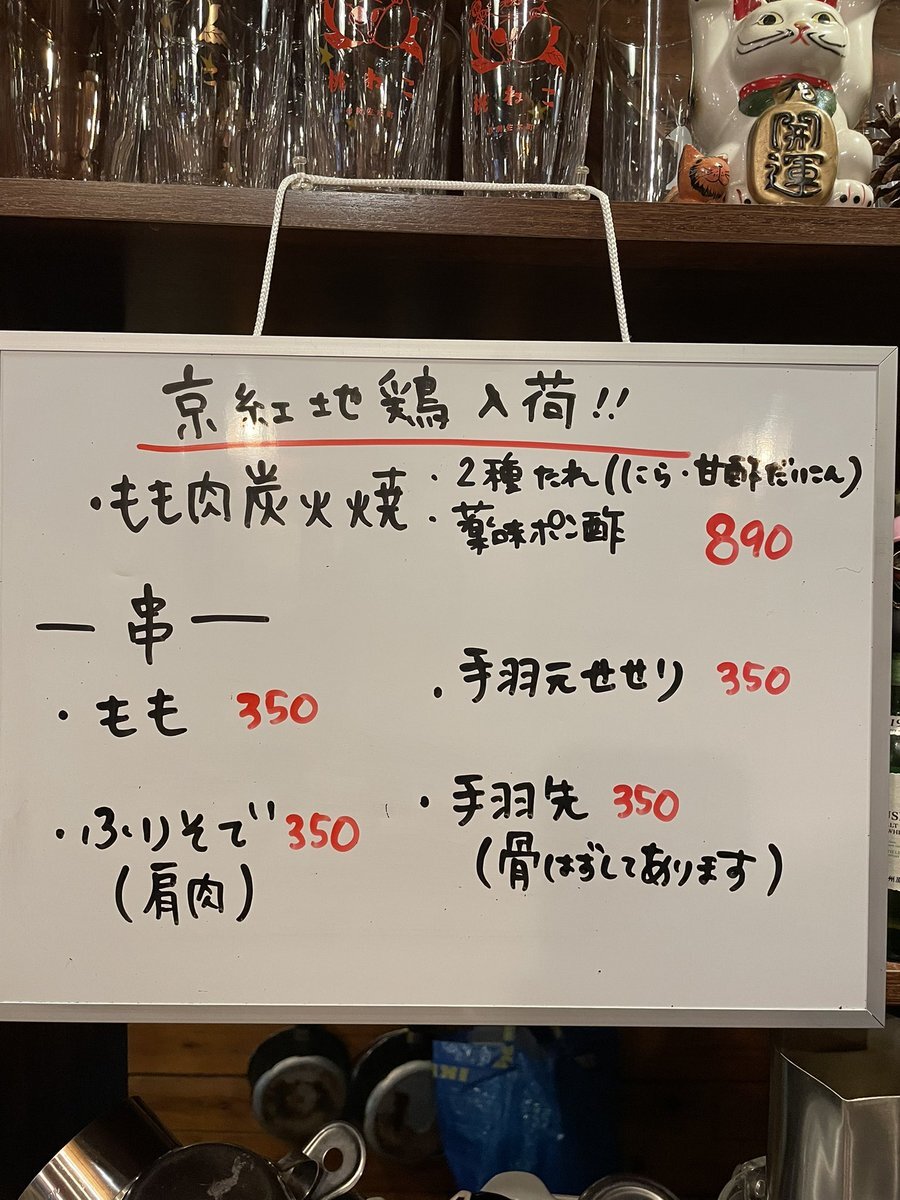 ねこ
開運
京紅地鶏入荷!!
・もも肉炭火焼 ・2種たれ((こら・甘酢だいこん)
・薬味ポン酢 890
一串一
・もも 350
・手羽元せせり 350
・ふりそで 350
(肩肉)
・手羽先 350
(骨はずしてあります)